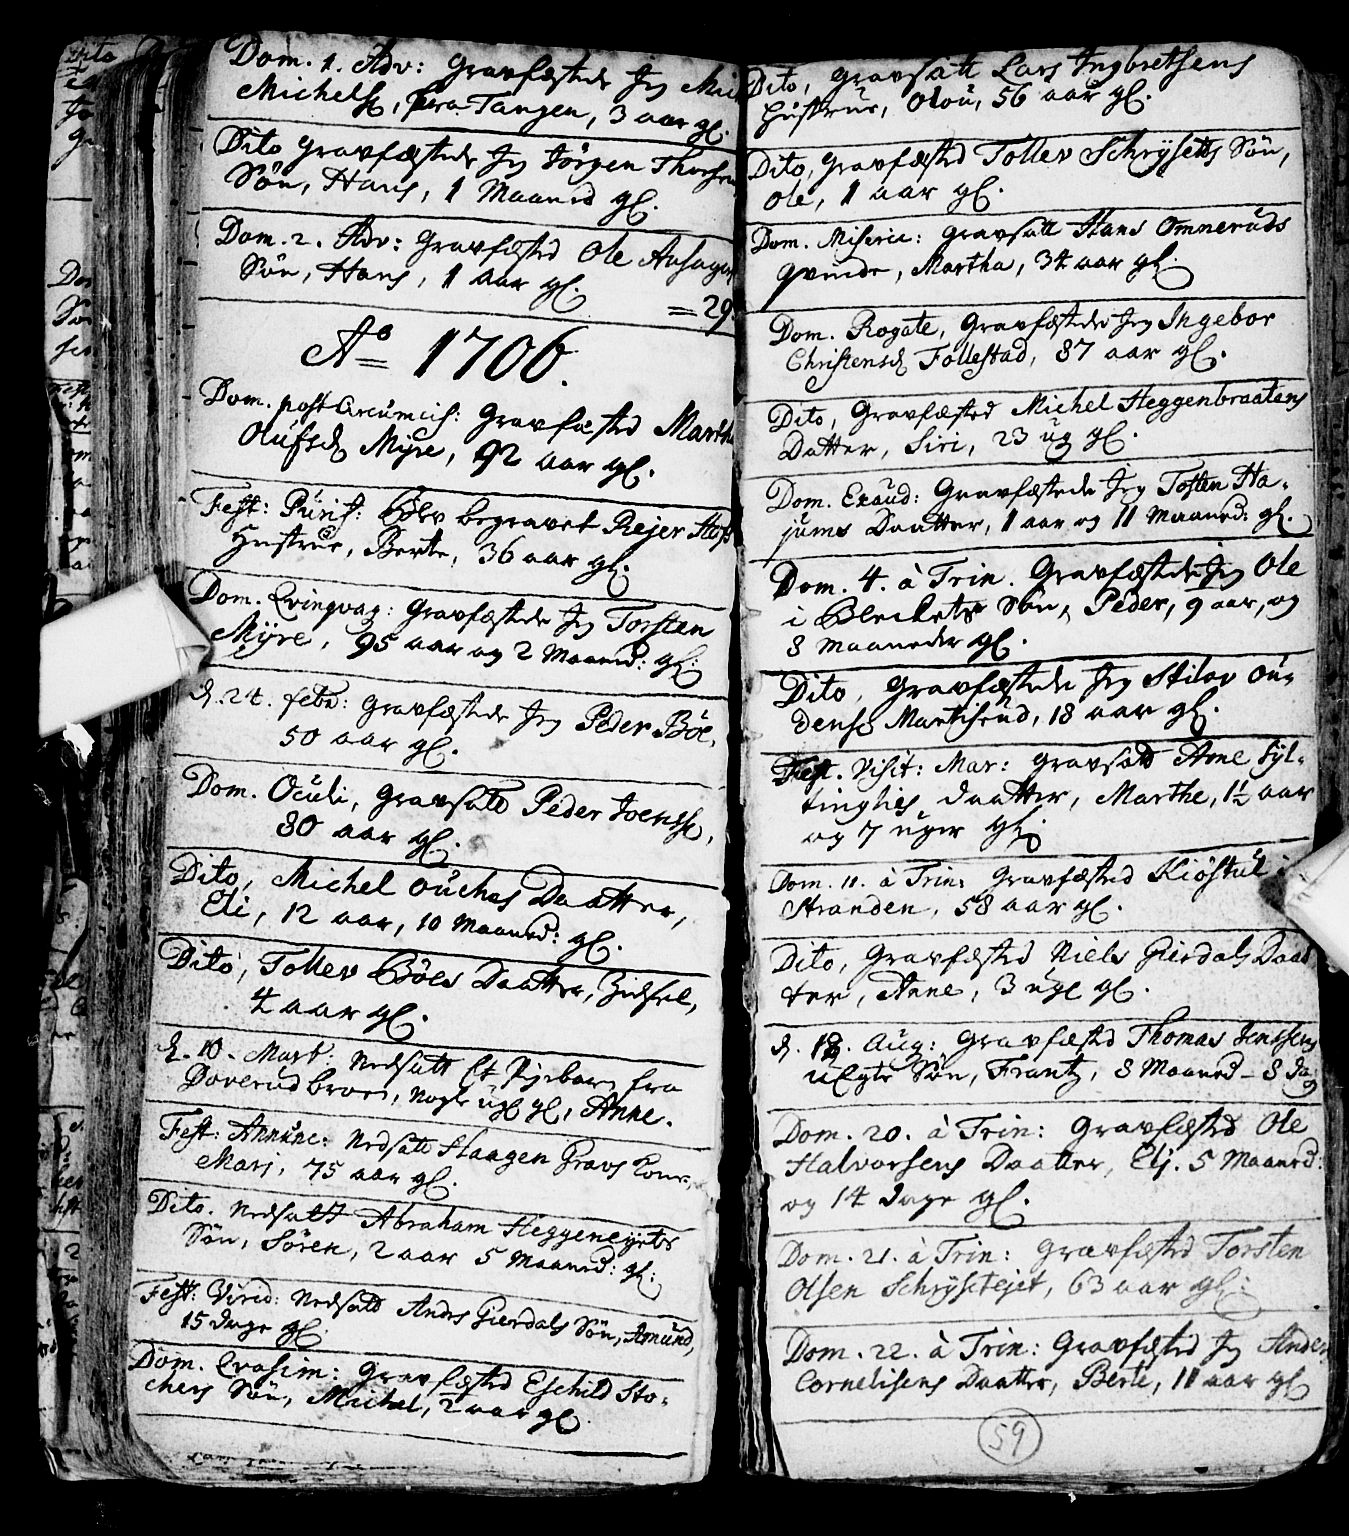 Dom. 1. Adv: Gravfæstede Jeg
Michels, fra Tangen, 3 aar gl.
Dito Gravfæstede Jeg Jörgen
Søn, Hans, 1 Maaned gl.
Dom. 2. Adv: Gravfæsted Ole
Søn, Hans, 1 Aar gl.
= 29
Ao = 1706.
Dom. post Circumcis: Gravfæsted
Olufsd Myre, 92 aar gl.
Fest: Purif: blev begravet Rejer
Hustrue, Berte, 36 aar gl.
Dom. Qvinqvag: Gravfæstede Jeg Torsten
Myre, 95 aar og 2 Maaned: gl:
d. 24. febr: Gravfæstede Jeg Peder Böe,
50 aar gl.
Dom. Oculi, Gravsatt Peder Joenss,
80 aar gl.
Dito, Michel Ouches Daatter,
Eli, 12 aar, 10 Maaned: gl.
Dito, Tollev Böes Daatter, Zidsel,
4 aar gl.
d. 10. Mart: Nedsatt Et Pigebarn fra
Doverud broen, Nogle ugl gl, Anne.
Fest: Annunc: Nedsatt Haagen Gravs Kone,
Mari, 75 aar gl.
Dito. Nedsatt Abraham Heggenejets
Søn, Sören, 2 aar 5 Maaned: gl:
Fest: Virid: Nedsatt Anders Gierdals Søn, Amund,
15 dage gl.
Dom. Qvasim: Gravfæsted Eschild Sto-
chers Søn, Michel, 2 aar gl.
Dito, Gravsatt Lars Ingbretsens
Hustrue, Olou, 56 aar gl.
Dito, Gravfæsted Tollev Schrÿsetts Søn,
Ole, 1 aar gl.
Dom. Miseric: Gravsatt Hans Ommeruds
Qvinde, Martha, 34 aar gl.
Dom. Rogate, Gravfæstede Jeg Ingebor
Christensd Follestad, 87 aar gl.
Dito, Gravfæsted Michel Heggenbraatens
Datter, Siri, 23 ug gl.
Dom. Exaud: Gravfæstede Jeg Tosten Ha-
jums Daatter, 1 aar og 11 Maaned: gl.
Dom. 4. à Trin. Gravfæstede Jeg Ole
i Bleikets Søn, Peder, 9 aar, og
8 Maaneder gl.
Dito, Gravfæstede Jeg Stilov Ou-
dens Martiserud, 18 aar gl.
Fest. Visit: Mar: Gravsatt Arne Syl-
tinglies daatter, Marthe, 1½ aar
og 7 uger gl:
Dom. 11. à Trin: Gravfæsted Kiöstul i
Stranden, 58 aar gl.
Dito, Gravfæsted Niels Gierdals Daat
ter, Anne, 3 uge gl.
d. Aug: Gravfæsted Thomas Jenssens
uEgte Søn, Frantz, 8 Maaned - 8 da:
Dom. 20. à Trin: Gravfæsted Ole
Halvorsens Daatter, Elj. 5 Maaned:
og 14 dage gl.
Dom. 21. à Trin: Gravfæsted Torsten
Olsen Schrÿstejet, 63 aar gl:
Dom. 22. à Trin: Gravfæsted Jeg Anders
Cornelisens Daatter, Berte, 11 aar gl
59